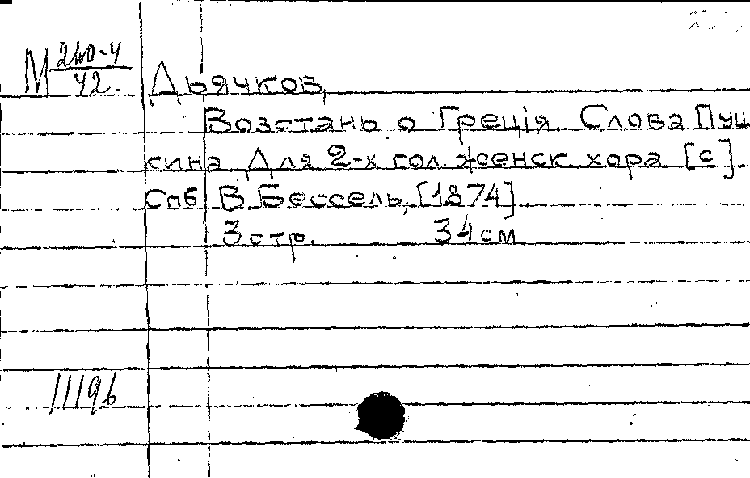 М 240-4
42. Дьячков,
Возстань о Греція. Слова Пуш
кина Для 2-х гол. женск хора [с].
Спб В. Бессель, [1874]
3 стр. 34 см
11196